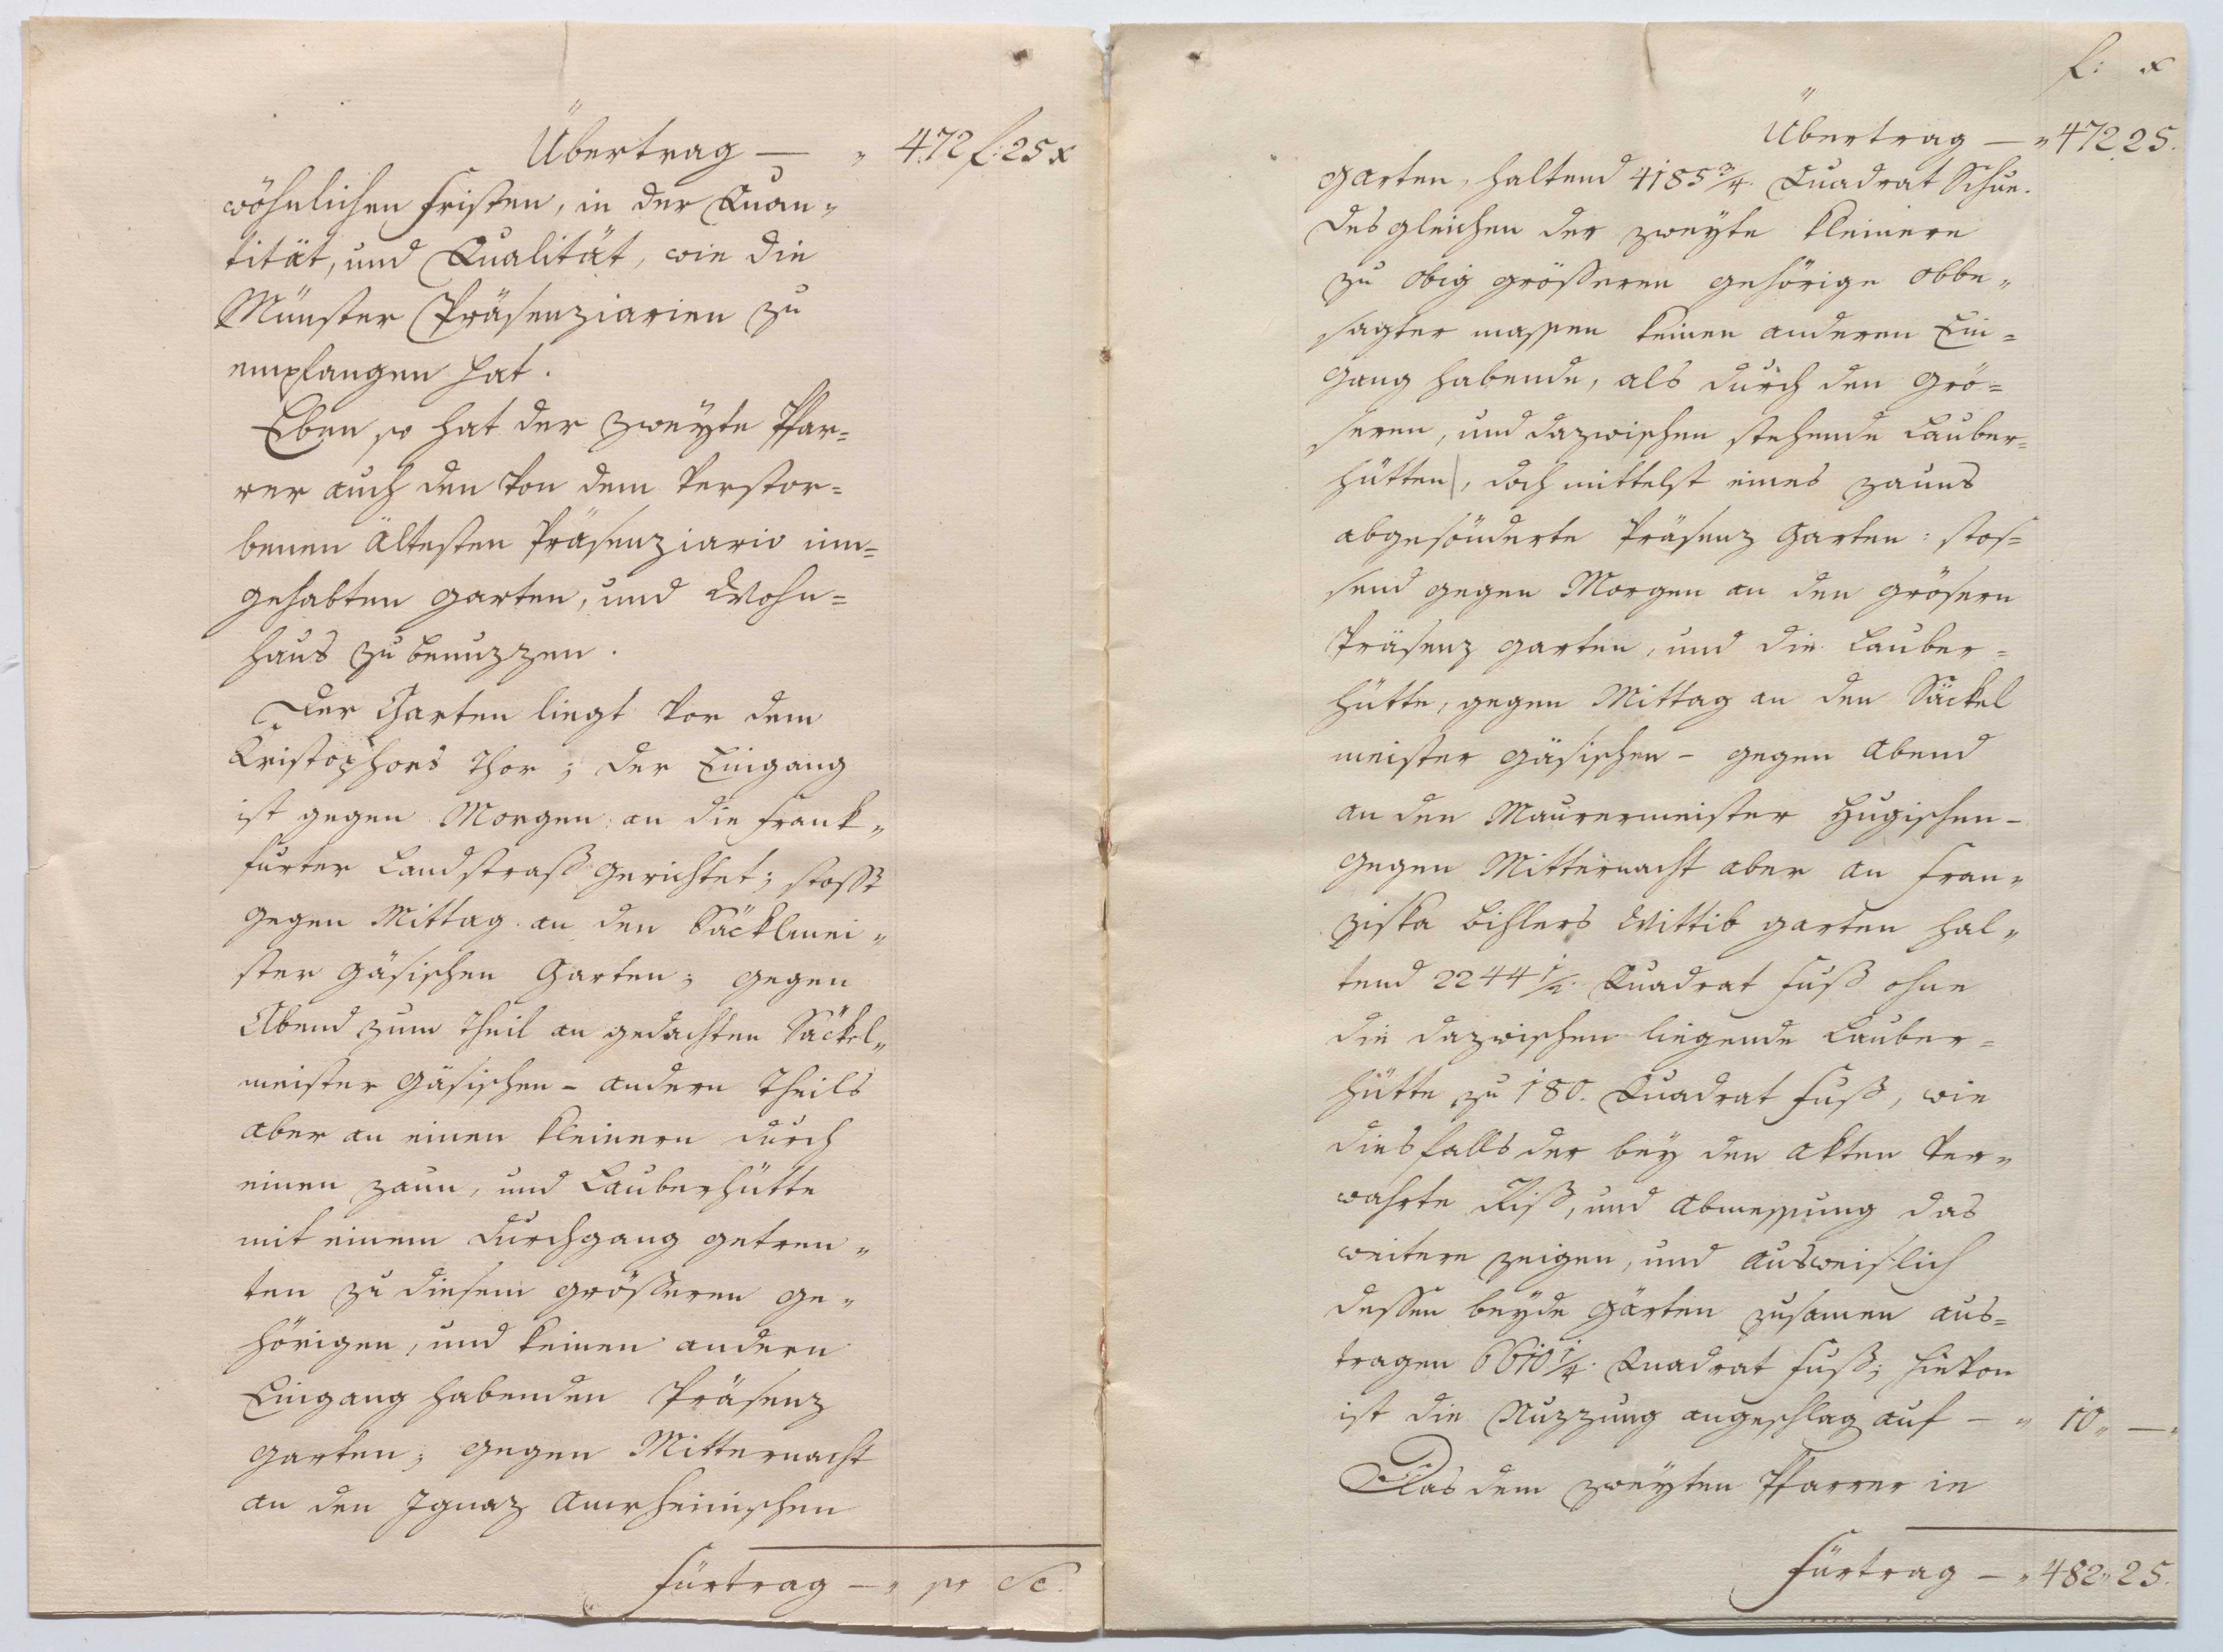 Übertrag — „ 472 f: 25 x
wöhnlichen Fristen, in der Quan„
tität, und Qualität, wie die
Münster Präsenziarien zu
empfangen hat.
Eben so hat der zweyte Pfar=
rer auch den von dem verstor=
benen ältesten Präsenziario inn=
gehabten Garten, und Wohn=
haus zu benuzzen.
Der Garten liegt vor dem
Kristophors Thor; der Eingang
ist gegen Morgen an die Frank„
furter Landstraß gerichtet; stosst
gegen Mittag an den Säcklmei„
ster Gäsischen Garten; gegen
Abend zum Theil an gedachten Säckel„
meister Gäsischen – andern Theils
aber an einen kleinern durch
einen Zaun, und Lauberhütte
mit einem Durchgang getren„
ten zu diesem grösseren ge„
hörigen, und keinen andern
Eingang habenden Präsenz
Garten; gegen Mitternacht
an den Ignaz Amrheinischen
Fürtrag — „ pr Se.
f: x
Übertrag — „ 472 25.
Garten, haltend 4185 3/4. Quadrat Schue.
Desgleichen der zweyte kleinere
zu obig grösseren gehörige obbe„
sagter massen keinen anderen Ein=
gang habende, als durch den grö=
seren, und dazwischen stehende Lauber=
hütten, doch mittelst eines Zauns
abgesönderte Präsenz Garten: stos=
send gegen Morgen an den grösern
Präsenz Garten, und die Lauber=
hütte, gegen Mittag an den Säckel
meister Gäsischen – gegen Abend
an den Maurermeister Hugischen –
gegen Mitternacht aber an Fran„
ziska Bihlers Wittib Garten hal„
tend 2244 1/2. Quadrat Fuß ohne
die dazwischen liegende Lauber=
hütte zu 180. Quadrat Fuß, wie
diesfalls der bey den Akten ver„
wahrte Riß, und Abmessung das
weitere zeigen, und ausweislich
dessen beyde Gärten zusamen aus=
tragen 6610 1/4. Quadrat Fuß; hievon
ist die Nuzzung angeschlag auf — „ 10 „ — „
Das dem zweyten Pfarrer in
Fürtrag — „ 482 „ 25.